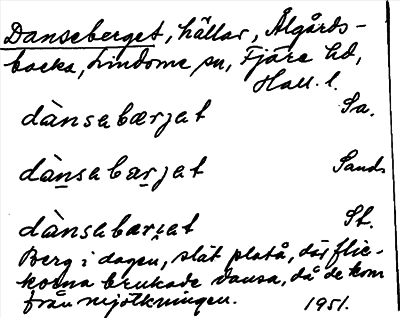 Danseberget, hällar, Älgårds-
backa, Lindome sn, Fjäre hd,
Hall. l.
dànsabærjat Sa.
dànsabarjat Sands
dànsabærjat St.
Berg i dagen, slät platå, där flic-
korna brukade dansa, då de kom
från mjölkningen. 1951.